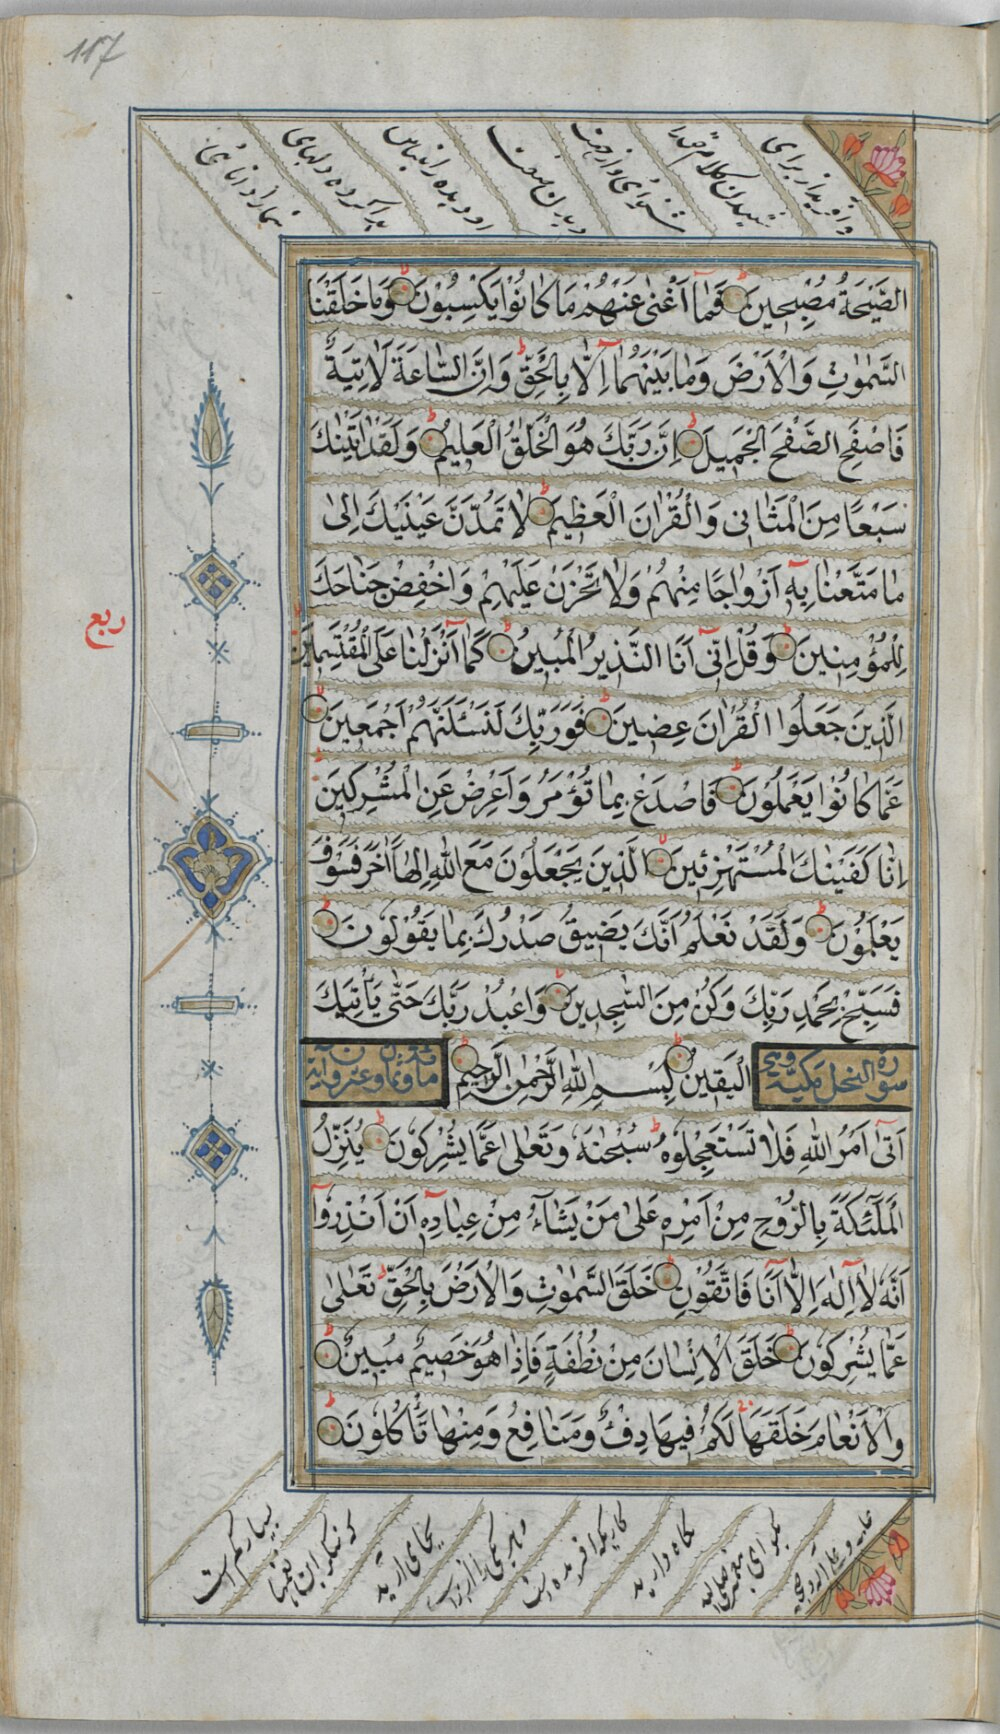 117
و آفرید از برای
شنیدن کلام خدا
شنوائی و از جهت
دیدن
او دیده را
پیدا کرده دلهای
الصَّيْحَةُ مُصْبِحِينَ فَمَا اَغْنٰى عَنْهُمْ مَا كَانُوْا يَكْسِبُوْنَ وَمَا خَلَقْنَا
السَّمٰوٰتِ وَالْاَرْضَ وَمَا بَيْنَهُمَا اِلَّا بِالْحَقِّ وَاِنَّ السَّاعَةَ لَاٰتِيَةٌ
فَاصْفَحِ الصَّفْحَ الْجَمِيلَ اِنَّ رَبَّكَ هُوَ الْخَلّٰقُ الْعَلِيمُ وَلَقَدْ اٰتَيْنٰكَ
سَبْعًا مِنَ الْمَثَانِى وَالْقُرْاٰنَ الْعَظِيمَ لَا تَمُدَّنَّ عَيْنَيْكَ اِلٰى
مَا مَتَّعْنَا بِهٖ اَزْوَاجًا مِنْهُمْ وَلَا تَحْزَنْ عَلَيْهِمْ وَاخْفِضْ جَنَاحَكَ
لِلْمُؤْمِنِينَ وَقُلْ اِنِّى اَنَا النَّذِيرُ الْمُبِينُ كَمَا اَنْزَلْنَا عَلَى الْمُقْتَسِمِينَ
ربع
الَّذِينَ جَعَلُوا الْقُرْاٰنَ عِضِينَ فَوَرَبِّكَ لَنَسْئَلَنَّهُمْ اَجْمَعِينَ
عَمَّا كَانُوْا يَعْمَلُوْنَ فَاصْدَعْ بِمَا تُؤْمَرُ وَاَعْرِضْ عَنِ الْمُشْرِكِينَ
اِنَّا كَفَيْنٰكَ الْمُسْتَهْزِئِينَ الَّذِينَ يَجْعَلُوْنَ مَعَ اللهِ اِلٰهًا اٰخَرَ فَسَوْفَ
يَعْلَمُوْنَ وَلَقَدْ نَعْلَمُ اَنَّكَ يَضِيقُ صَدْرُكَ بِمَا يَقُوْلُوْنَ
فَسَبِّحْ بِحَمْدِ رَبِّكَ وَكُنْ مِنَ السّٰجِدِينَ وَاعْبُدْ رَبَّكَ حَتّٰى يَاْتِيَكَ
الْيَقِينُ بِسْمِ اللهِ الرَّحْمٰنِ الرَّحِيمِ
سورة النحل مكية وهى
مائة وثمان وعشرون آية
اَتٰى اَمْرُ اللهِ فَلَا تَسْتَعْجِلُوْهُ سُبْحٰنَهٗ وَتَعٰلٰى عَمَّا يُشْرِكُوْنَ يُنَزِّلُ
الْمَلٰٓئِكَةَ بِالرُّوْحِ مِنْ اَمْرِهٖ عَلٰى مَنْ يَشَاءُ مِنْ عِبَادِهٖ اَنْ اَنْذِرُوْا
اَنَّهٗ لَا اِلٰهَ اِلَّا اَنَا فَاتَّقُوْنِ خَلَقَ السَّمٰوٰتِ وَالْاَرْضَ بِالْحَقِّ تَعٰلٰى
عَمَّا يُشْرِكُوْنَ خَلَقَ الْاِنْسَانَ مِنْ نُطْفَةٍ فَاِذَا هُوَ خَصِيمٌ مُبِينٌ
وَالْاَنْعَامَ خَلَقَهَا لَكُمْ فِيهَا دِفْءٌ وَمَنَافِعُ وَمِنْهَا تَأْكُلُوْنَ
نگاه دارید
کاریکه افریده است
بجای آرید
که شکر این نعمتها
بسیار کم است